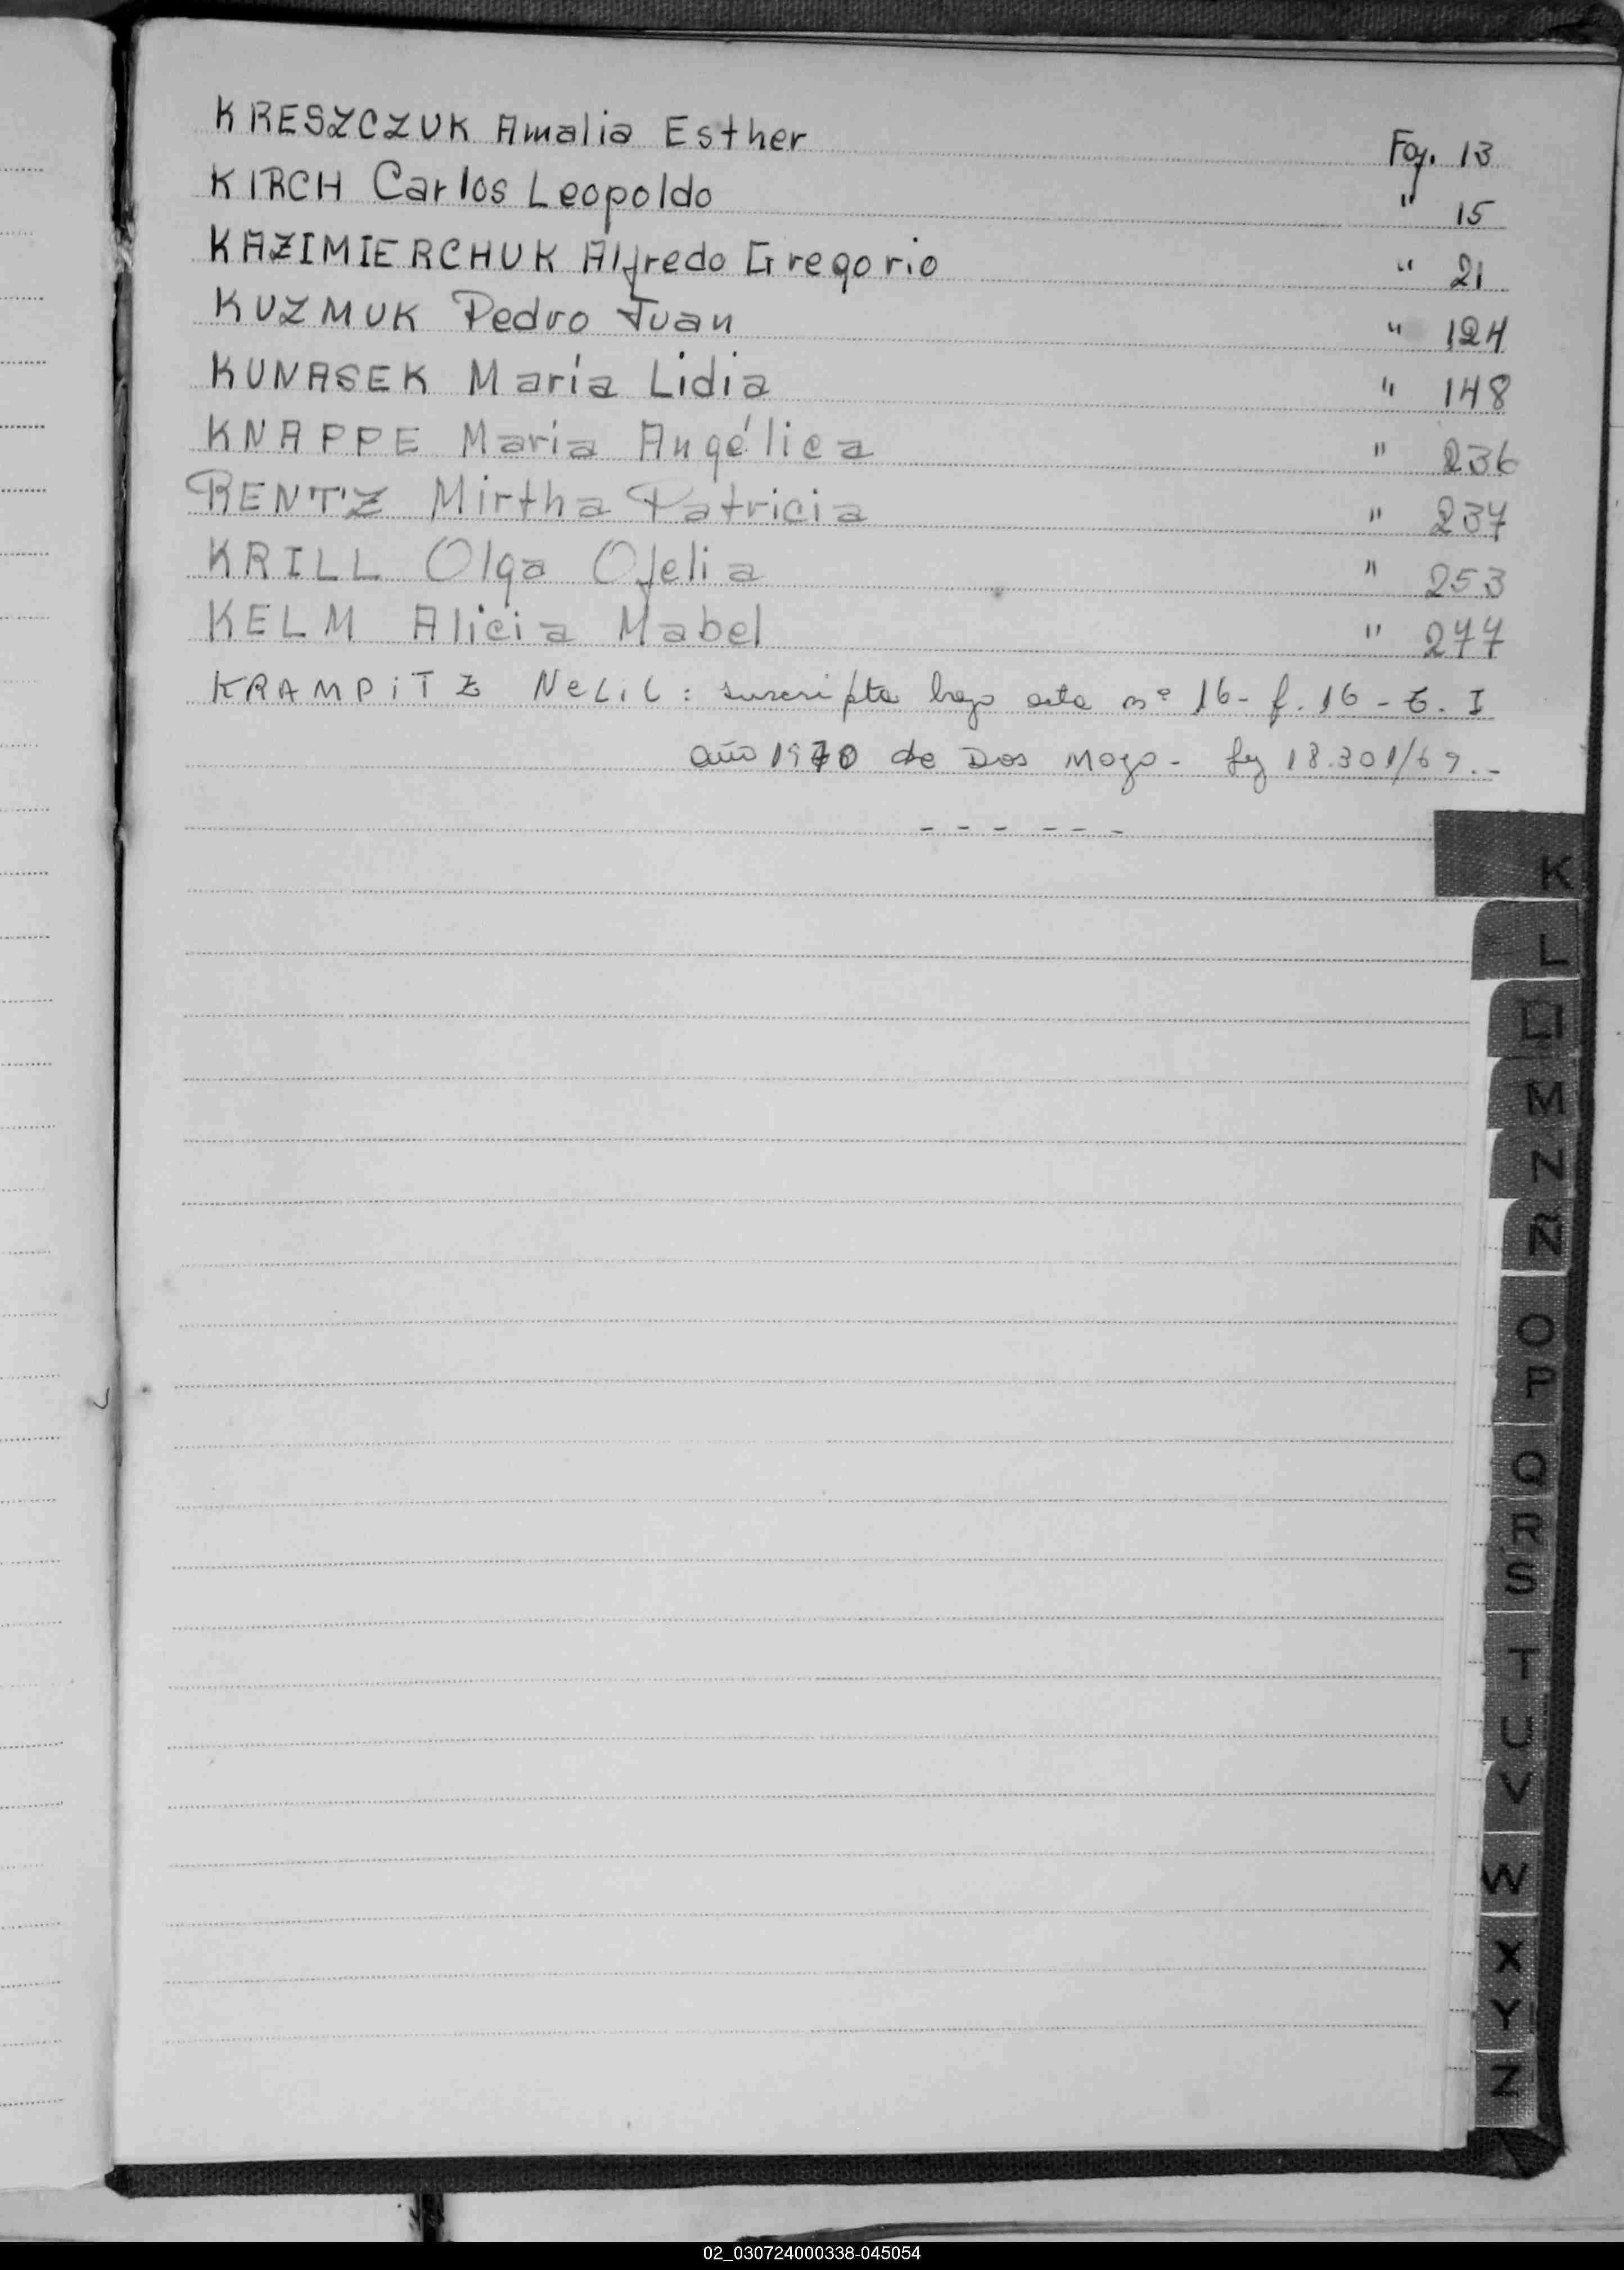 KRESZCZUK Amalia Esther Foj. 13
KIRCH Carlos Leopoldo " 15
KAZIMIERCHUK Alfredo Gregorio " 21
KUZMUK Pedro Juan " 124
KUNASEK María Lidia " 148
KNAPPE María Angélica " 236
RENTZ Mirtha Patricia " 237
KRILL Olga Ofelia " 253
KELM Alicia Mabel " 277
KRAMPITZ NELIL: inscripta bajo acta nº 16- f. 16 - t. I
año 1970 de Dos Mayo - ley 18.301/69.-
- - - - - -
K
L
LL
M
N
Ñ
O
P
Q
R
S
T
U
V
W
X
Y
Z
02_030724000338-045054